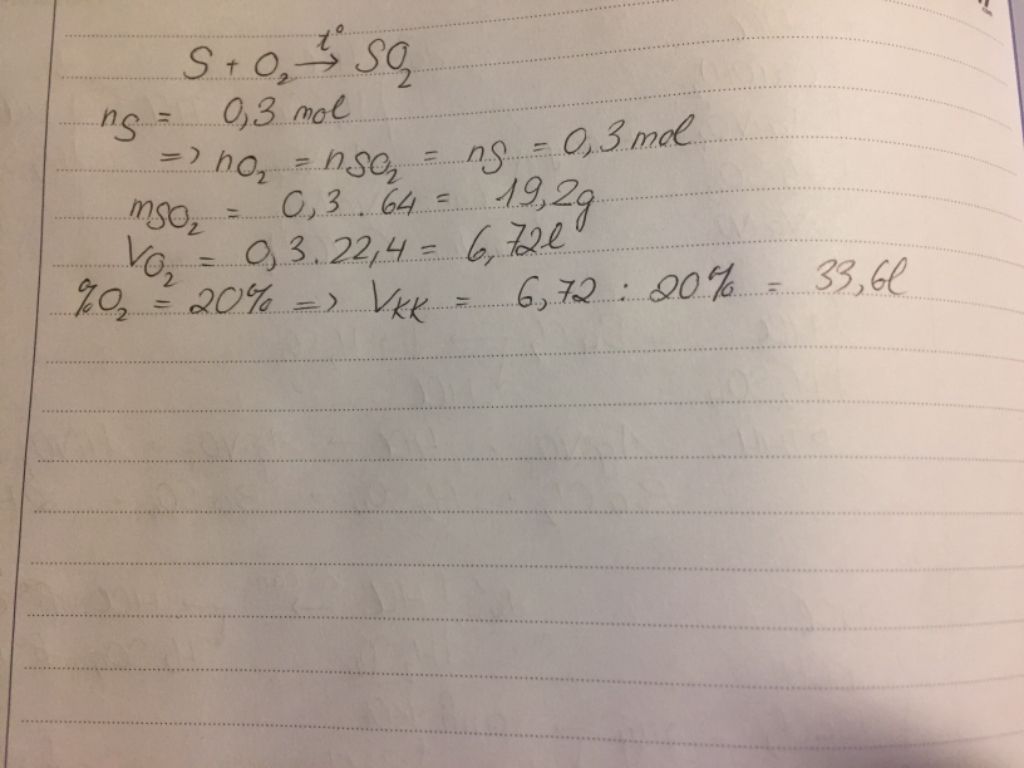 S + O₂ →t° SO₂
nS = 0,3 mol
=> nO₂ = nSO₂ = nS = 0,3 mol
mSO₂ = 0,3 . 64 = 19,2g
VO₂ = 0,3 . 22,4 = 6,72l
%O₂ = 20% => VKK = 6,72 : 20% = 33,6l